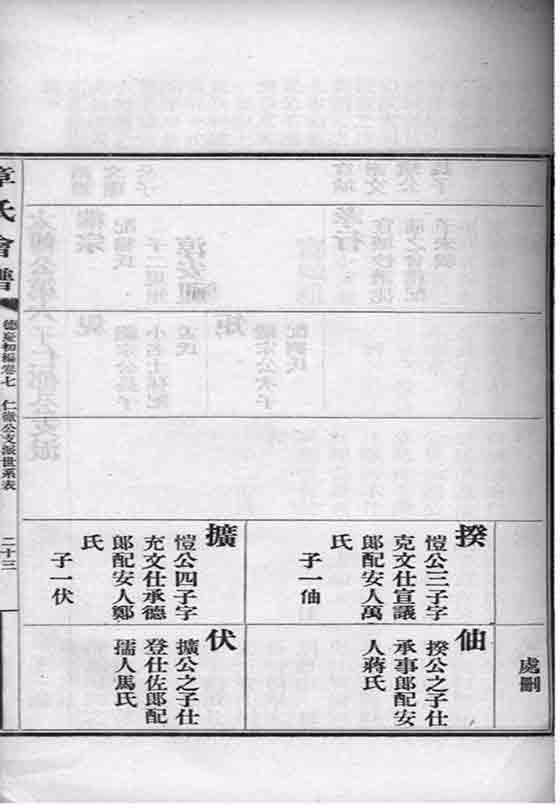 章氏會譜
德慶初編卷七
仁徹公支派世系表
二十三
處刪
揆
愷公三子字
克文仕宣議
郎配安人萬
氏
子一伷
伷
揆公之子仕
承事郎配安
人蔣氏
擴
愷公四子字
充文仕承德
郎配安人鄭
氏
子一伏
伏
擴公之子仕
登仕佐郎配
孺人馬氏